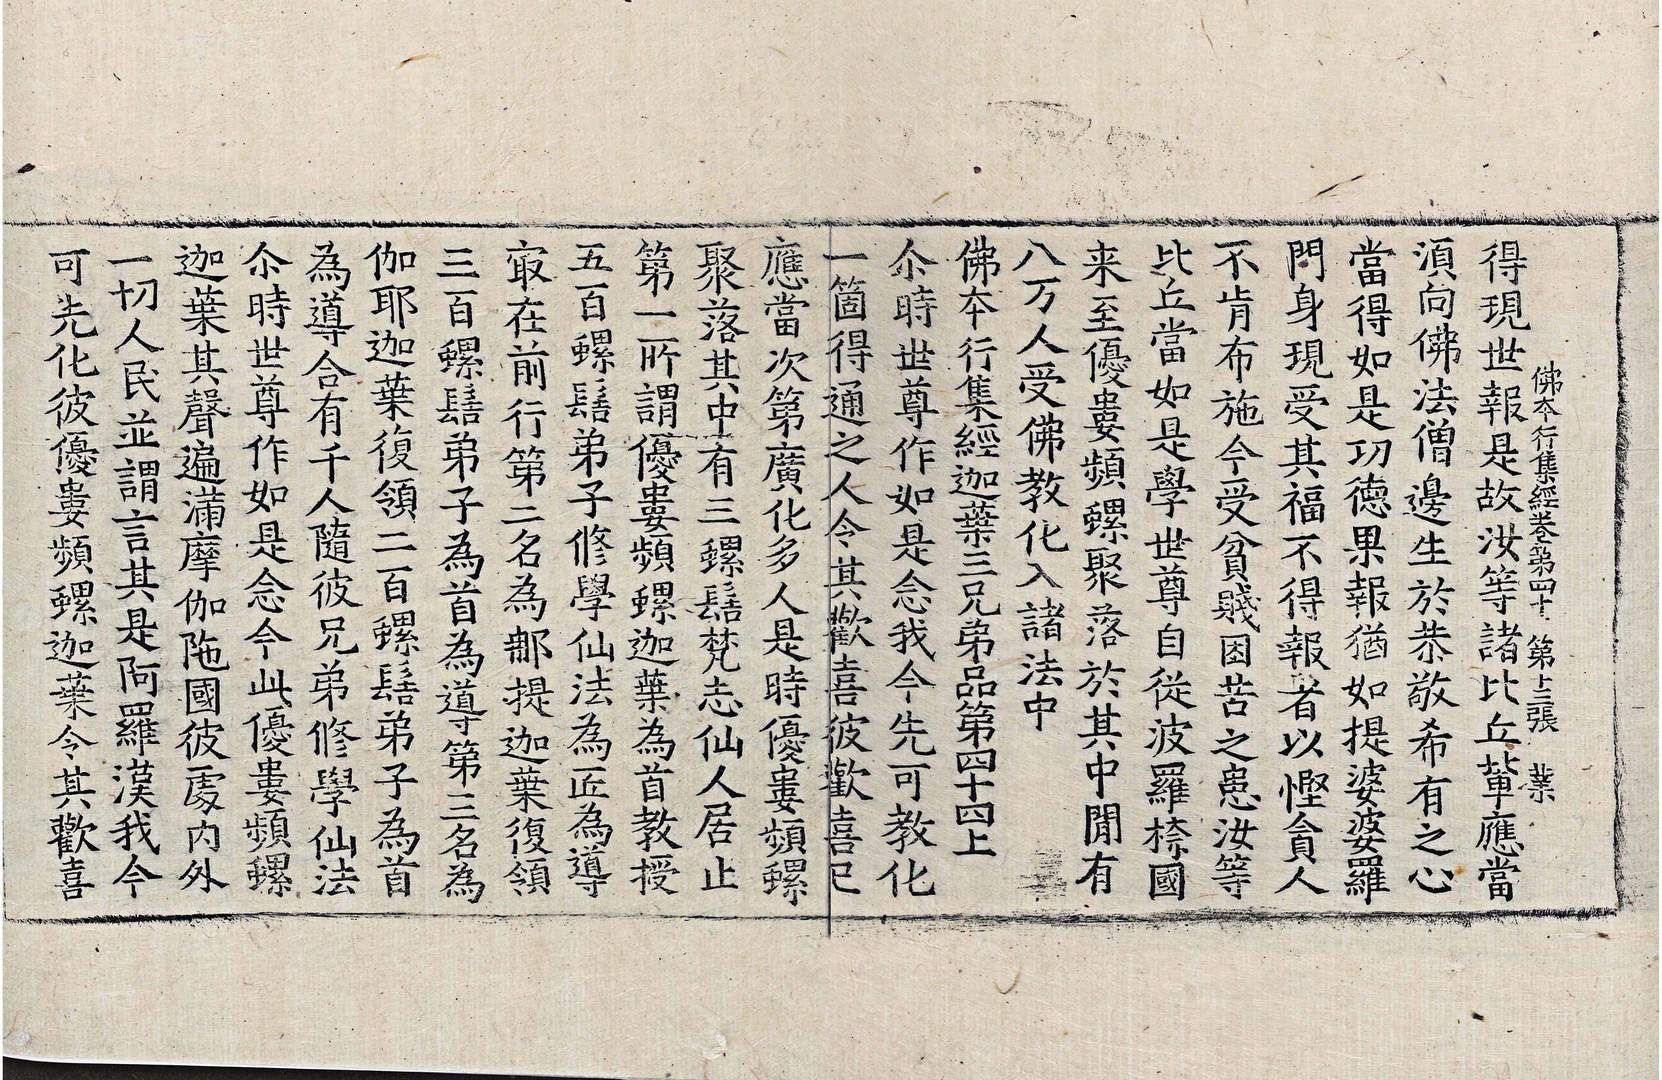 佛本行集經卷第四十 第十三張 業
得現世報是故汝等諸比丘輩應當
湏向佛法僧邊生於恭敬希有之心
當得如是功德果報猶如提婆婆羅
門身現受其福不得報者以慳貪人
不肯布施今受貧賤困苦之患汝等
比丘當如是學世尊自從波羅㮈國
来至優婁頻螺聚落於其中閒有
八万人受佛教化入諸法中
佛本行集經迦葉三兄弟品第四十四上
尒時世尊作如是念我今先可教化
一箇得通之人令其歡喜彼歡喜已
應當次第廣化多人是時優婁頻螺
聚落其中有三螺髻梵志仙人居止
第一所謂優婁頻螺迦葉為首教授
五百螺髻弟子修學仙法為匠為導
㝡在前行第二名為那提迦葉復領
三百螺髻弟子為首為導第三名為
伽耶迦葉復領二百螺髻弟子為首
為導合有千人隨彼兄弟修學仙法
尒時世尊作如是念今此優婁頻螺
迦葉其聲遍滿摩伽陁國彼處内外
一切人民並謂言其是阿羅漢我今
可先化彼優婁頻螺迦葉令其歡喜